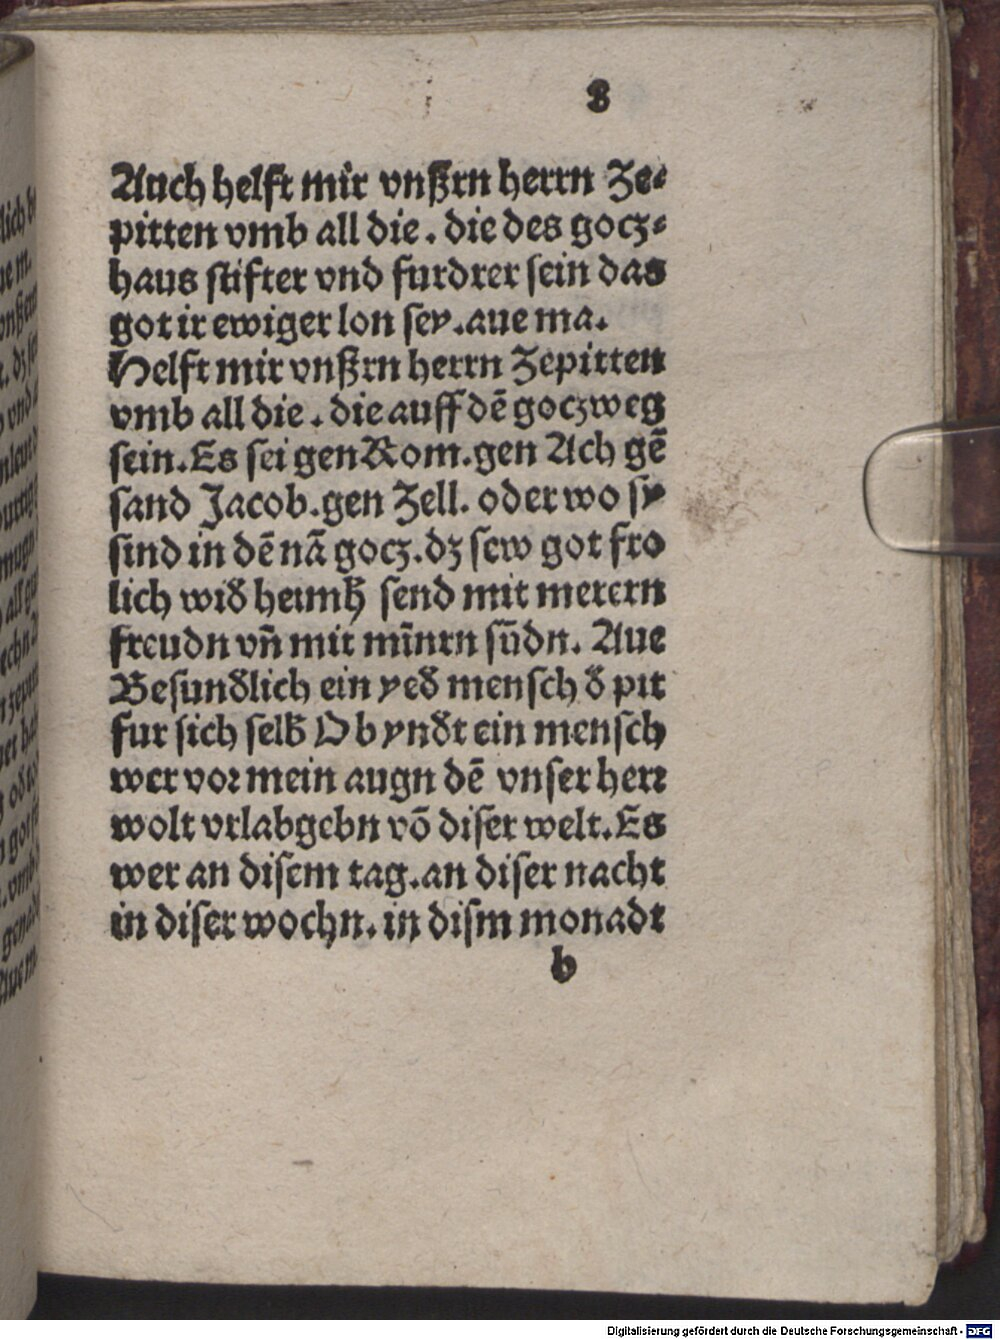 8
Auch helft mir vnßrn herrn Ze⸗
pitten vmb all die . die des gocz⸗
haus stifter vnd furdrer sein das
got ir ewiger lon sey . aue ma.
Helft mir vnßrn herrn Zepitten
vmb all die . die auff dē goczweg
sein. Es sei gen Rom. gen Ach gē
sand Jacob. gen Zell. oder wo sy
sind in dē nā gocz. dz sew got fro
lich wid᷑ heimh͛ send mit merern
freudn vn̄ mit mīnrn sūdn. Aue
Besund᷑lich ein yed᷑ mensch d᷑ pit
fur sich selb̄ Ob ynd᷑t ein mensch
wer vor mein augn dē vnser herr
wolt vrlabgebn vō diser welt. Es
wer an disem tag. an diser nacht
in diser wochn. in dism monadt
b
Digitalisierung gefördert durch die Deutsche Forschungsgemeinschaft - DFG